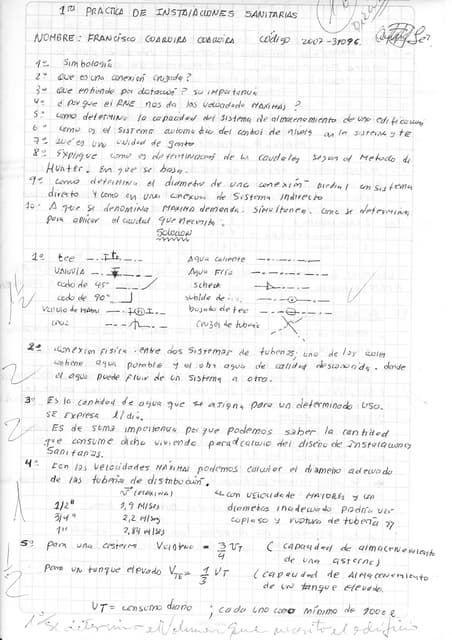 1ra PRACTICA DE INSTALACIONES SANITARIAS
NOMBRE: FRANCISCO COAQUIRA COAQUIRA código 2007-31096.
1º Simbología
2º que es una conexión cruzada?
3º que entiende por dotación? su importancia
4º ¿por que el RNE nos da las velocidades MAXIMAS?
5º como determino la capacidad del sistema de almacenamiento de una edificación
6º como es el sistema automático del control de niveles en la cisterna y TE
7º que es una unidad de gasto
8º Explique como es determinación de los caudales segun el Metodo de
Hunter. En que se basa.
9º como determina el diametro de una conexión predial en sistema
directo y como en una conexion de sistema indirecto
10. A que se denomina MAXIMA demanda simultanea. como se determina
para aplicar el caudal que necesito.
Solucion
1º tee Agua caliente
VALVULA Agua Fría
codo de 45° scheck
codo de 90° subida de
bajada de tee
cruz Cruze de tuberia
2º conexion fisica entre dos sistemas de tuberias, uno de los cuales
contiene agua potable y el otro agua de calidad desconocida. donde
el agua puede fluir de un sistema a otro.
3º Es la cantidad de agua que se asigna para un determinado uso.
SE EXPRESA l/dia.
Es de suma importancia por que podemos saber la cantidad
que consume dicha vivienda para calculo del diseño de instalaciones
Sanitarias.
4º Con las velocidades MAXIMAS podemos calcular el diametro adecuado
de las tuberia de distribución.
V (MAXIMA) con velocidade MAYORES y un
1/2" 1,9 M/seg diametos inadecuado podria
3/4" 2,2 M/seg colapso y ruptura de tuberia
1" 2,84 M/seg
5º para una cisterna = 3/4 VT (capacidad de almacenamiento
de una cisterna)
Para un tanque elevado VTE = 1/3 VT (capacidad de Almacenamiento
de un tanque elevado.
VT = consumo diario ; cada uno como minimo de 1000 l
1º/ se determina el volumen que necesita el edificio